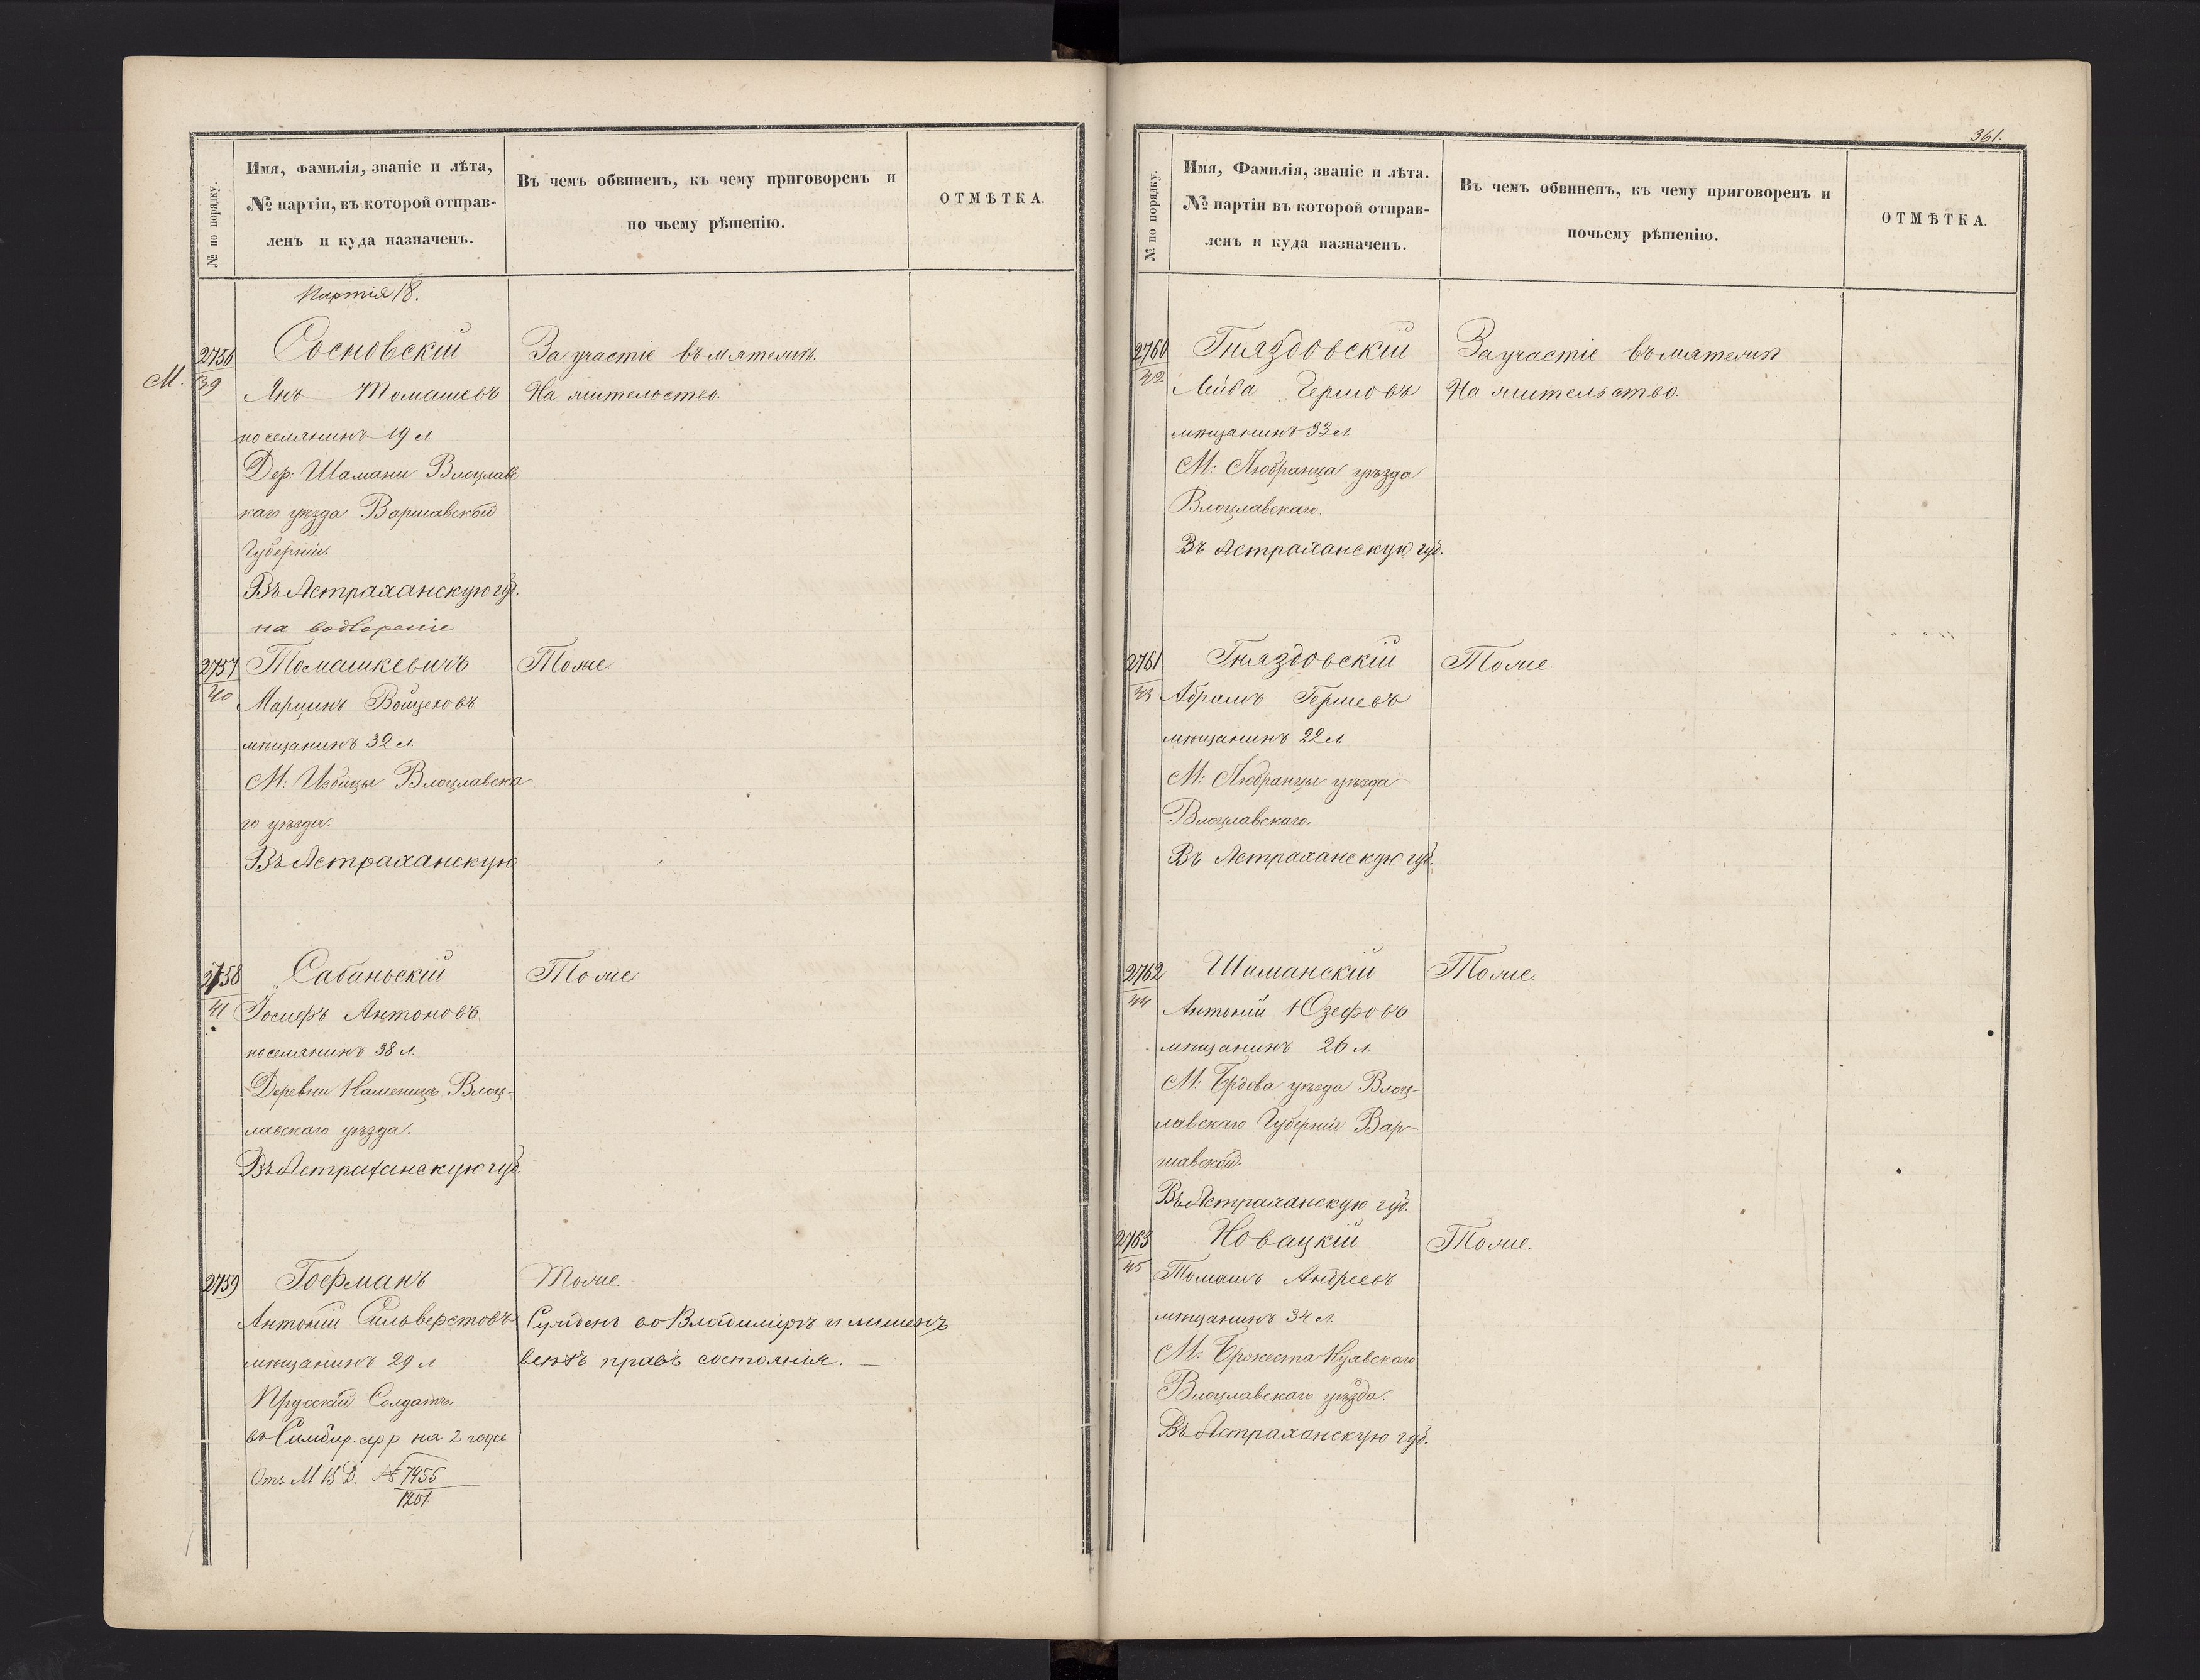 № по порядку.
Имя, фамилія, званіе и лѣта,
№ партіи, въ которой отправ-
ленъ и куда назначенъ.
Въ чемъ обвиненъ, къ чему приговоренъ и
по чьему рѣшенію.
ОТМѢТКА.
Партія 18.
М.
2756
39
Сосновскій
Янъ Томашевъ
поселянинъ 19 л.
Дер. Шамани Влоцлавс
каго уѣзда Варшавской
Губерніи.
Въ Астраханскую губ.
на водвореніе
За участіе въ мятежѣ.
На жительство.
2757
40
Томашкевичъ
Марцинъ Войцеховъ
мѣщанинъ 32 л.
М: Избицы Влоцлавска
го уѣзда.
Въ Астраханскую
Тоже
2758
41
Сабаньскій
Іосифъ Антоновъ.
поселянинъ 38 л.
Деревни Каменицъ Влоц-
лавскаго уѣзда.
Въ Астраханскую губ.
Тоже
2759
Гофманъ
Антоній Сильверстовъ
мѣщанинъ 29 л
Прусскій Солдатъ.
въ Симбир. ар р на 2 года
Отъ М В Д. № 7455
1201.
Тоже.
Сужденъ во Владимірѣ и лишенъ
всѣхъ правъ состоянія. —
361.
№ по порядку.
Имя, Фамилія, званіе и лѣта.
№ партіи въ которой отправ-
ленъ и куда назначенъ.
Въ чемъ обвиненъ, къ чему приговоренъ и
почьему рѣшенію.
ОТМѢТКА.
2760
42
Гняздовскій
Лейба Гершовъ
мѣщанинъ 33 л
М: Любранца уѣзда
Влоцлавскаго.
Въ Астраханскую губ.
За участіе въ мятежѣ
На жительство.
2761
43
Гняздовскій
Абрамъ Гершевъ
мѣщанинъ 22 л.
М: Любранцы уѣзда
Влоцлавскаго.
Въ Астраханскую губ.
Тоже
2762
44
Шиманскій
Антоній Юзефовъ
мѣщанинъ 26 л.
М: Брдова уѣзда Влоц-
лавскаго Губерніи Вар-
шавской.
Въ Астраханскую губ.
Тоже.
2763
45
Новацкій
Томашъ Андреевъ
мѣщанинъ 34 л.
М: Бржеста Куявскаго
Влоцлавскаго уѣзда.
Въ Астраханскую губ.
Тоже.